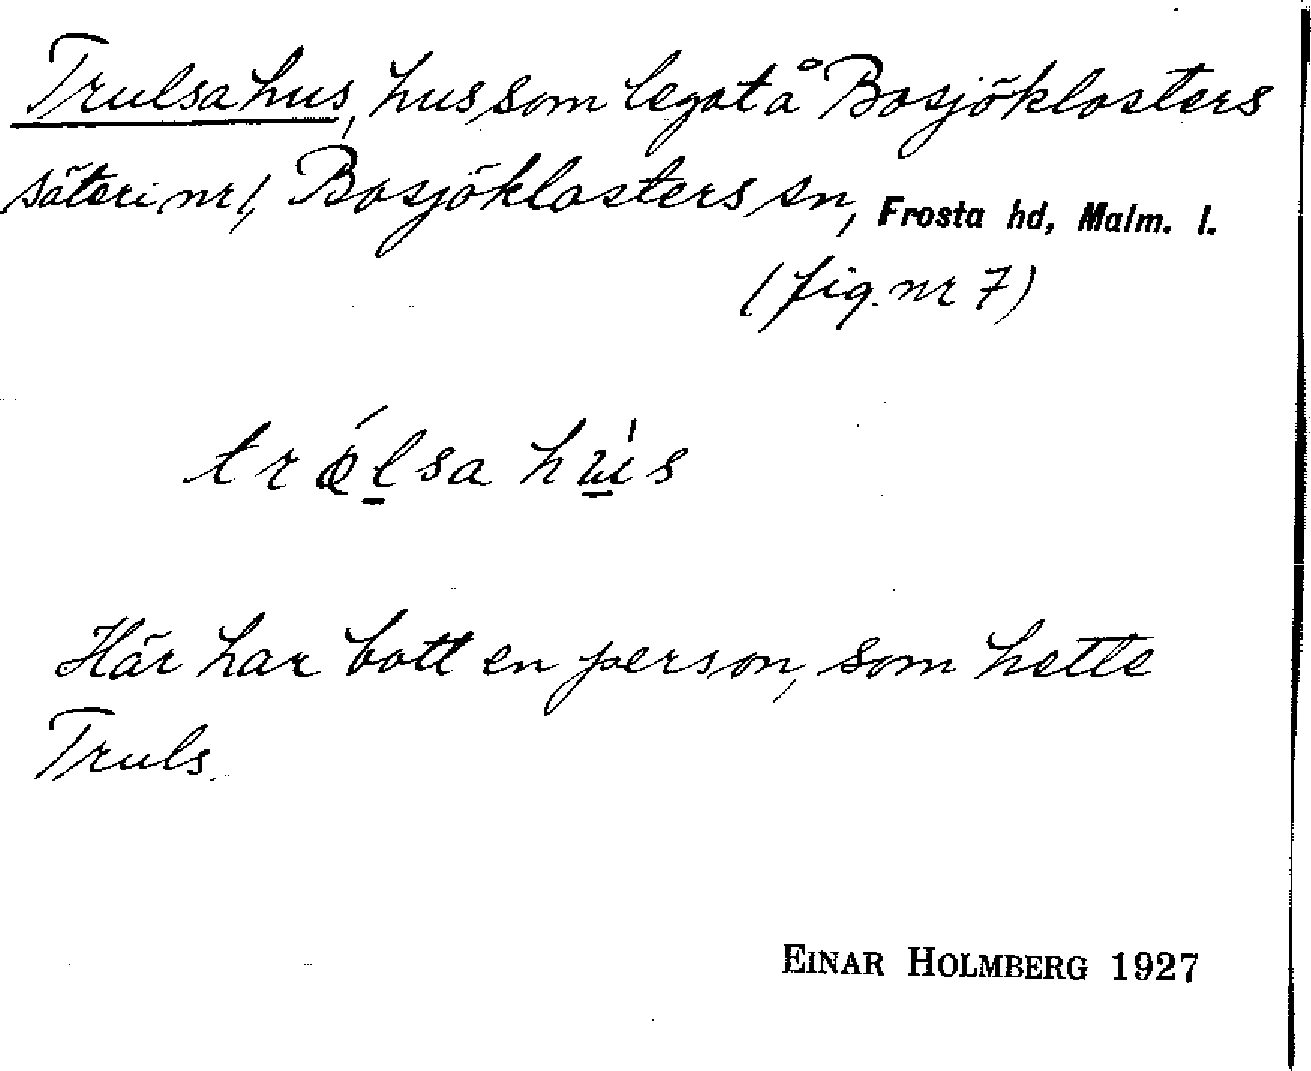 Trulsahus, hus som legat å Bosjöklosters
säteri nr 1, Bosjöklosters sn, Frosta hd, Malm. l.
(fig. nr 7)
hús
Här har bott en person, som hette
Truls.
EINAR HOLMBERG 1927